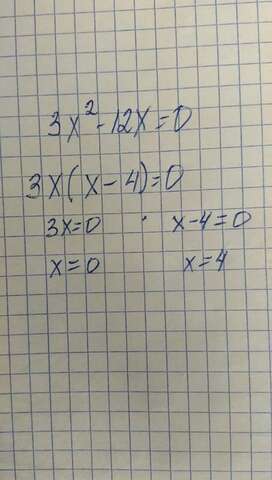 3x²-12x=0
3x(x-4)=0
3x=0 x-4=0
x=0 x=4